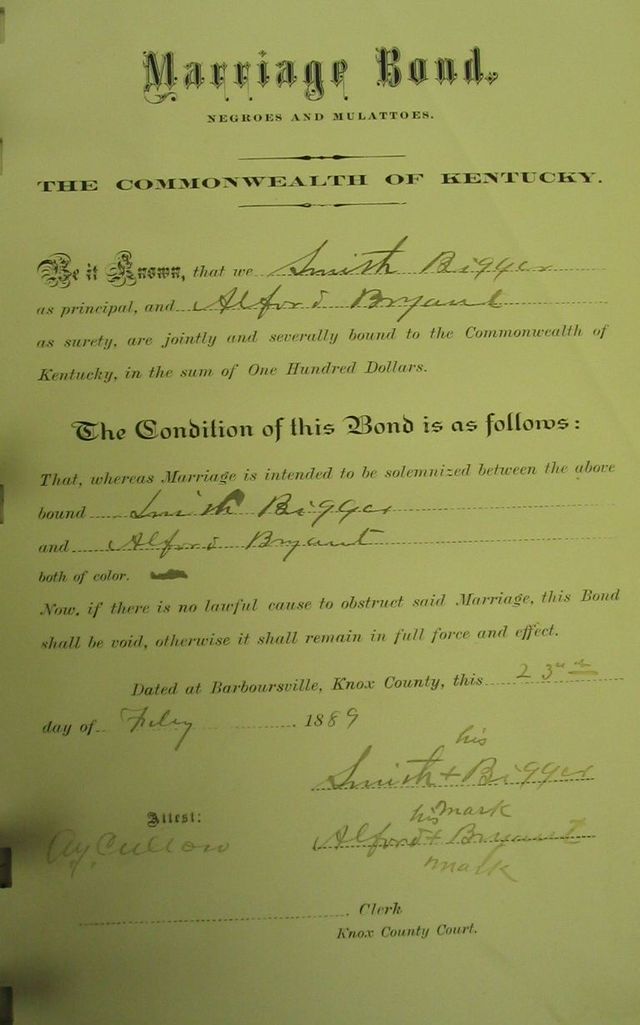 Marriage Bond.
NEGROES AND MULATTOES.
THE COMMONWEALTH OF KENTUCKY.
Be it Known, that we Smith Bigger
as principal, and Alford Bryant
as surety, are jointly and severally bound to the Commonwealth of
Kentucky, in the sum of One Hundred Dollars.
The Condition of this Bond is as follows:
That, whereas Marriage is intended to be solemnized between the above
bound Smith Bigger
and Alford Bryant
both of color.
Now, if there is no lawful cause to obstruct said Marriage, this Bond
shall be void, otherwise it shall remain in full force and effect.
Dated at Barboursville, Knox County, this 23rd
day of 1889
his
Smith + Bigger
his mark
Alford + Bryant
mark
Attest:
Clerk
Knox County Court.